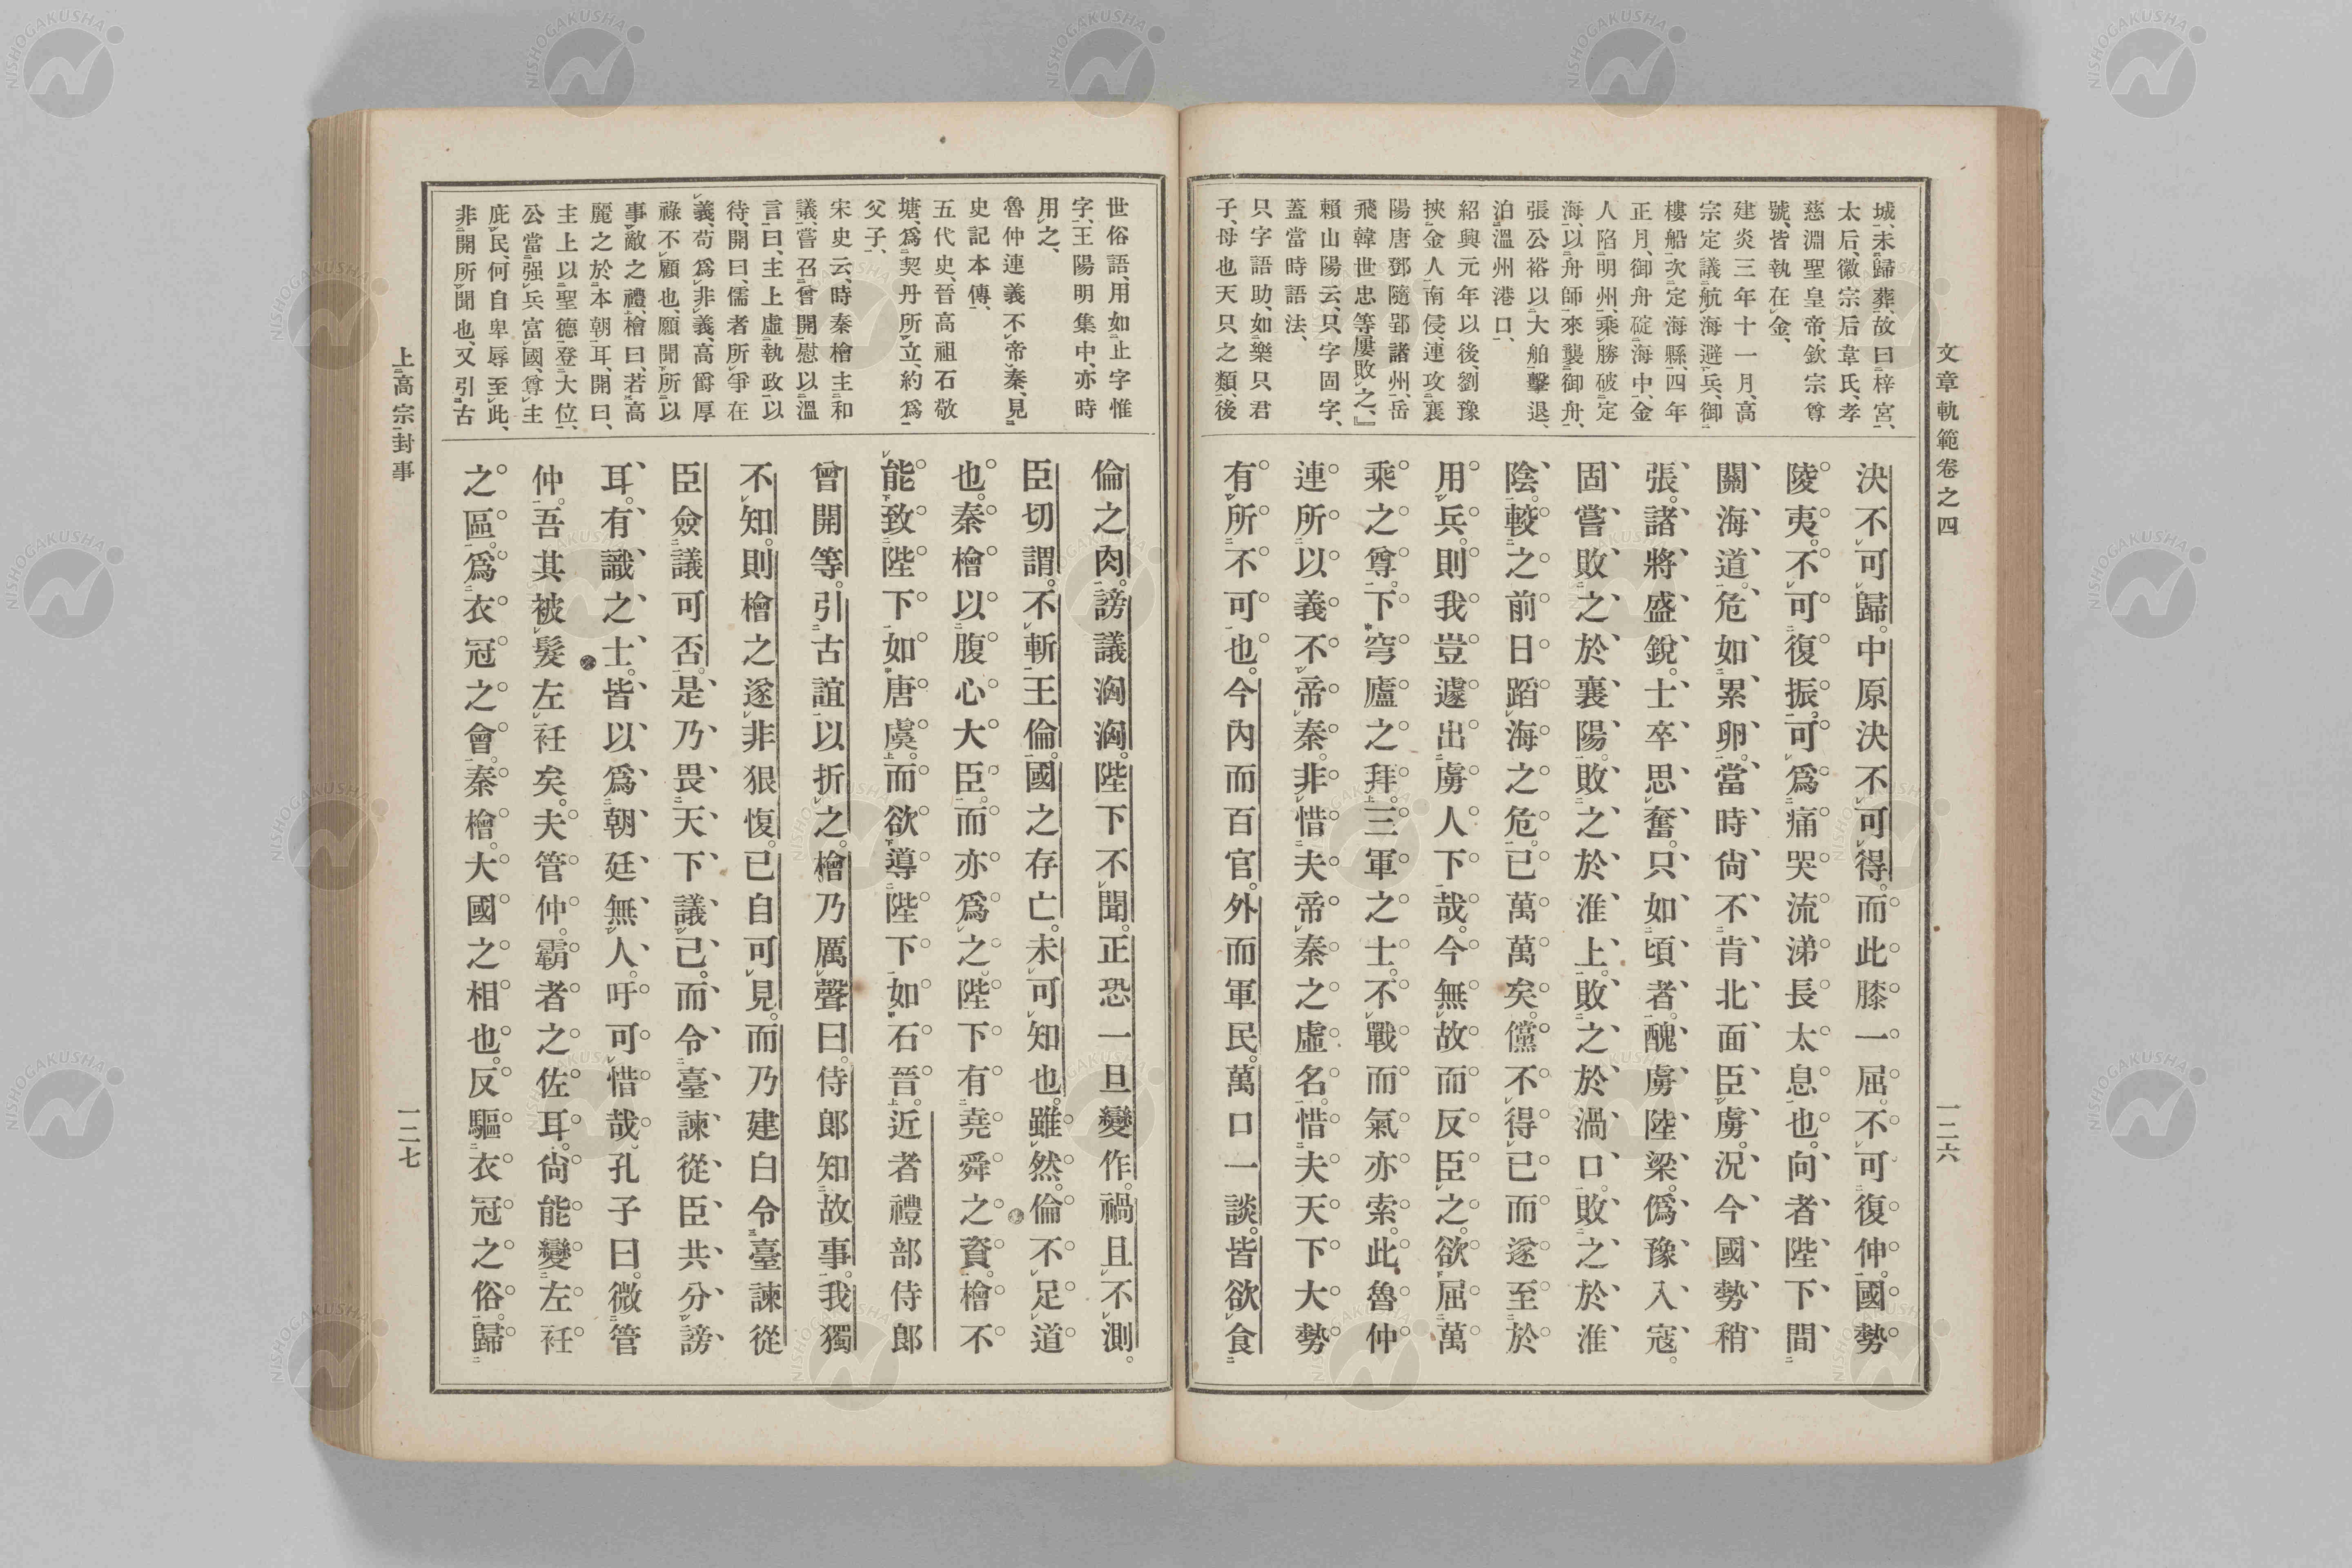 文章軌範卷之四
一二六
城、未歸葬、故曰梓宮、
太后、徽宗后韋氏、孝
慈淵聖皇帝、欽宗尊
號、皆執在金、
建炎三年十一月、高
宗定議航海避兵、御
樓船次定海縣、四年
正月、御舟碇海中、金
人陷明州、乘勝破定
海、以舟師來襲御舟、
張公裕以大舶擊退、
泊溫州港口、
紹興元年以後、劉豫
挾金人南侵、連攻襄
陽唐鄧隨郢諸州、岳
飛韓世忠等屢敗之、』
賴山陽云、只字固字、
蓋當時語法、
只字語助、如樂只君
子、母也天只之類、後
決不可歸。中原決不可得。而此膝一屈。不可復伸。國勢
陵夷。不可復振。可爲痛哭流涕長太息也。向者陛下間
關海道。危如累卵。當時尙不肯北面臣虜。況今國勢稍
張。諸將盛銳。士卒思奮。只如頃者。醜虜陸梁。僞豫入寇。
固嘗敗之於襄陽。敗之於淮上。敗之於渦口。敗之於淮
陰。較之前日蹈海之危。已萬萬矣。儻不得已而遂至於
用兵。則我豈遽出虜人下哉。今無故而反臣之。欲屈萬
乘之尊。下穹廬之拜。三軍之士。不戰而氣亦索。此魯仲
連所以義不帝秦。非惜夫帝秦之虛名。惜夫天下大勢
有所不可也。今內而百官。外而軍民。萬口一談。皆欲食
世俗語、用如止字惟
字、王陽明集中、亦時
用之、
魯仲連義不帝秦、見
史記本傳、
五代史、晉高祖石敬
塘、爲契丹所立、約爲
父子、
宋史云、時秦檜主和
議、嘗召曾開慰以溫
言曰、主上虛執政以
待、開曰、儒者所爭在
義、苟爲非義、高爵厚
祿不顧也、願聞所以
事敵之禮、檜曰、若高
麗之於本朝耳、開曰、
主上以聖德登大位、
公當强兵富國、尊主
庇民、何自卑辱至此、
非開所聞也、又引古
倫之肉。謗議洶洶。陛下不聞。正恐一旦變作。禍且不測。
臣切謂。不斬王倫。國之存亡。未可知也。雖然。倫不足道
也。秦檜以腹心大臣。而亦爲之。陛下有堯舜之資。檜不
能致陛下如唐虞。而欲導陛下如石晉。近者禮部侍郎
曾開等。引古誼以折之。檜乃厲聲曰。侍郎知故事。我獨
不知。則檜之遂非狠愎。已自可見。而乃建白令臺諫從
臣僉議可否。是乃畏天下議己。而令臺諫從臣共分謗
耳。有識之士。皆以爲朝廷無人。吁可惜哉。孔子曰。微管
仲。吾其被髮左衽矣。夫管仲。霸者之佐耳。尙能變左衽
之區。爲衣冠之會。秦檜。大國之相也。反驅衣冠之俗。歸
上高宗封事
一二七